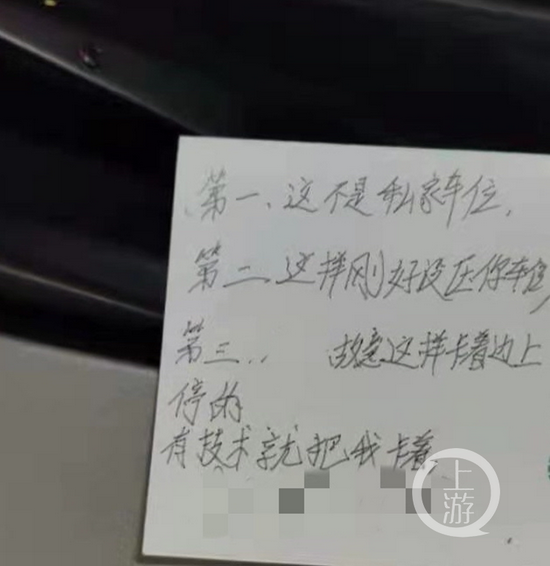 第一、这不是私家车位，
第二 这样刚好没压你车位，
第三.. 故意这样卡着边上
停的
有技术就把我卡着
上游